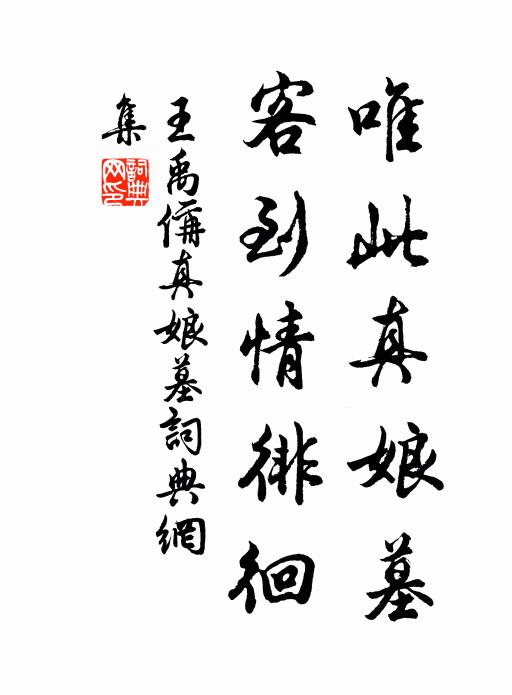 唯此真娘墓
客到情徘徊
王禹偁真娘墓詞典網
集
詞典
网印